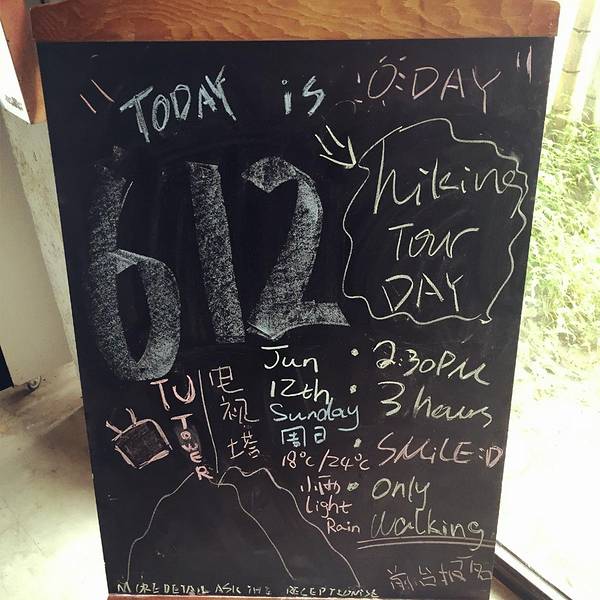 "TODAY is DAY"
612
hiking
Tour
DAY
Jun
12th
Sunday
周日
18°C/24°C
小雨
Light
Rain
· 2:30PM
· 3 hours
· SMiLE:D
· only
walking
TU
TOWER
电视塔
前台报名
MORE DETAIL ASK THE RECEPTIONIST